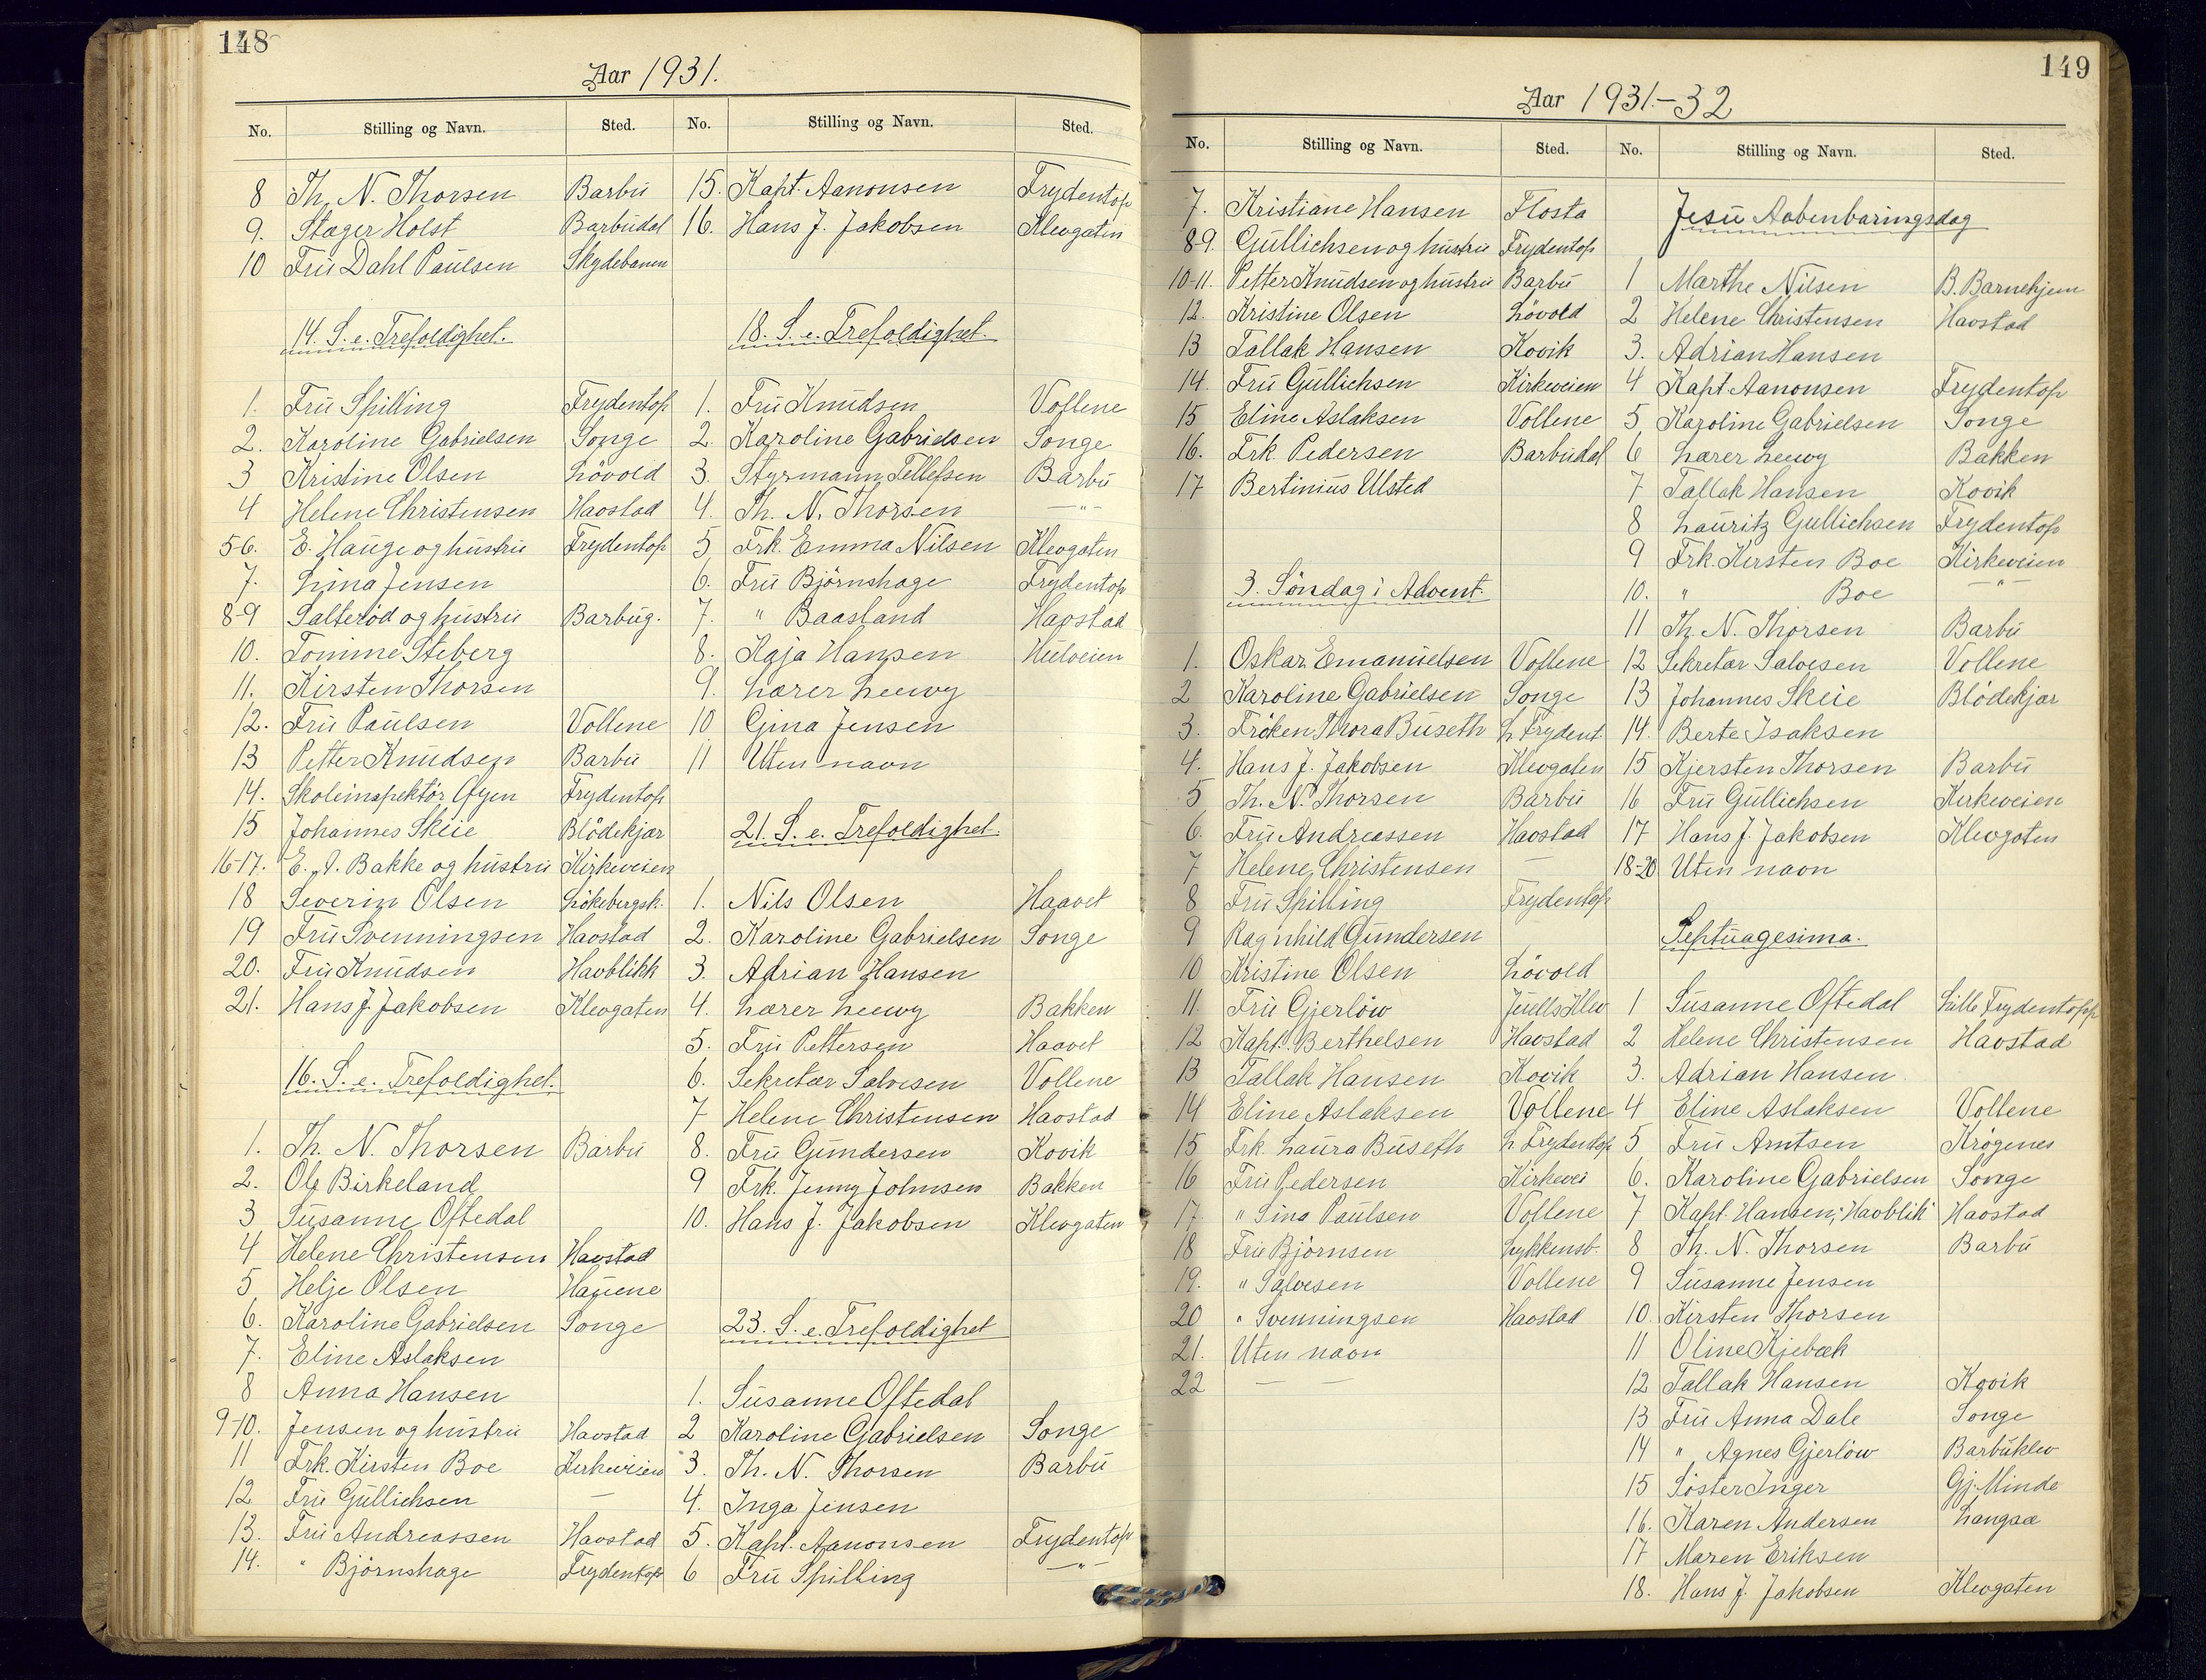 148
Aar 1931.
No. Stilling og Navn. Sted.
8 Th. N. Thorsen Barbu
9. Stager Holst Barbudal
10 Fru Dahl Paulsen Skydebanen
14. S. e. Trefoldighet.
1. Fru Spilling Frydentop
2. Karoline Gabrielsen Songe
3 Kristine Olsen Lövold
4 Helene Christensen Havstad
5-6. E. Hauge og hustru Frydentop
7. Lina Jensen
8-9 Salterød og hustru Barbug.
10. Tomine Steberg
11. Kirsten Thorsen
12. Fru Paulsen Vollene
13 Petter Knudsen Barbu
14. Skoleinspektör Øyen Frydentop
15 Johannes Skeie Blödekjær
16-17. E. A. Bakke og hustru Kirkeveien
18 Severin Olsen Lökebergsk.
19 Fru Svenningsen Havstad
20. Fru Knudsen Havblikk
21. Hans J. Jakobsen Klevgaten
16. S. e. Trefoldighet.
1. Th. N. Thorsen Barbu
2. Ole Birkeland
3 Susanne Oftedal
4 Helene Christensen Havstad
5 Helje Olsen Haugene
6. Karoline Gabrielsen Songe
7. Eline Aslaksen
8 Anna Hansen
9-10. Jensen og hustru Havstad
11 Frk. Kirsten Boe Kirkeveien
12 Fru Gullichsen —
13. Fru Andreassen Havstad
14. " Björnshage Frydentop
No. Stilling og Navn. Sted.
15. Kapt. Aanonsen Frydentop
16. Hans J. Jakobsen Klevgaten
18. S. e. Trefoldighet.
1. Fru Knudsen Vollene
2. Karoline Gabrielsen Songe
3. Styrmann Tellefsen Barbu
4. Th. N. Thorsen —"—
5 Frk. Emma Nilsen Klevgaten
6. Fru Björnshage Frydentop
7. " Baasland Havstad
8. Kaja Hansen Hulveien
9. Lærer Leewy
10 Gina Jensen
11 Uten navn
21. S. e. Trefoldighet.
1. Nils Olsen Haavet
2. Karoline Gabrielsen Songe
3. Adrian Hansen
4. Lærer Leewy Bakken
5. Fru Pettersen Haavet
6. Sekretær Salvesen Vollene
7 Helene Christensen Havstad
8. Fru Gundersen Kovik
9 Frk. Jenny Johnsen Bakken
10. Hans J. Jakobsen Klevgaten
23. S. e. Trefoldighet
1. Susanne Oftedal
2 Karoline Gabrielsen Songe
3. Th. N. Thorsen Barbu
4. Inga Jensen
5. Kapt. Aanonsen Frydentop
6 Fru Spilling —"—
149
Aar 1931.-32
No. Stilling og Navn. Sted.
7. Kristiane Hansen Flosta
8-9. Gullichsen og hustru Frydentop
10-11. Petter Knudsen og hustru Barbu
12. Kristine Olsen Lövold
13 Tallak Hansen Kovik
14. Fru Gullichsen Kirkeveien
15 Eline Aslaksen Vollene
16. Frk Pedersen Barbudal
17 Bertinius Ulsted
3. Söndag i Advent.
1. Oskar Emanuelsen Vollene
2 Karoline Gabrielsen Songe
3. Fröken Thora Buseth L. Frydent.
4. Hans J. Jakobsen Klevgaten
5 Th. N. Thorsen Barbu
6. Fru Andreassen Havstad
7 Helene Christensen —
8 Fru Spilling Frydentop
9 Ragnhild Gundersen
10 Kristine Olsen Lövold
11. Fru Gjerlöw Juells Klev
12 Kapt. Berthelsen Havstad
13 Tallak Hansen Kovik
14 Eline Aslaksen Vollene
15 Frk. Laura Buseth L. Frydentop
16 Fru Pedersen Kirkevei
17 " Sina Paulsen Vollene
18 Fru Björnsen Lykkensb.
19. " Salvesen Vollene
20 " Svenningsen Havstad
21. Uten navn
22 — —
No. Stilling og Navn. Sted.
Jesu Aabenbaringsdag
1 Marthe Nilsen B. Barnehjem
2 Helene Christensen Havstad
3. Adrian Hansen
4 Kapt Aanonsen Frydentop
5 Karoline Gabrielsen Songe
6 Lærer Leewy Bakken
7 Tallak Hansen Kovik
8 Lauritz Gullichsen Frydentop
9 Frk. Kirsten Boe Kirkeveien
10. " Boe —"—
11 Th. N. Thorsen Barbu
12 Sekretær Salvesen Vollene
13 Johannes Skeie Blödekjær
14. Berte Isaksen
15 Kjersten Thorsen Barbu
16 Fru Gullichsen Kirkeveien
17 Hans J. Jakobsen Klevgaten
18-20 Uten navn
Septuagesima.
1 Susanne Oftedal Lille Frydentopp
2 Helene Christensen Havstad
3. Adrian Hansen.
4 Eline Aslaksen Vollene
5 Fru Arntsen Krøgenes
6. Karoline Gabrielsen Songe
7 Kapt. Hansen; "Havblik" Havstad
8 Th. N. Thorsen Barbu
9 Susanne Jensen
10. Kirsten Thorsen
11 Oline Kjebæk
12 Tallak Hansen Kovik
13 Fru Anna Dale Songe
14 " Agnes Gjerlöw Barbuklev
15 Söster Inger Gj. Minde
16. Karen Andersen Langsæ
17 Maren Eriksen
18. Hans J. Jakobsen Klevgaten